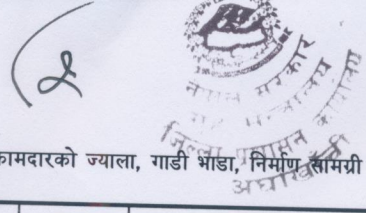 नेपाल सरकार
गृह मन्त्रालय
जिल्ला प्रशासन कार्यालय
अर्घाखाँची
कामदारको ज्याला, गाडी भाडा, निर्माण सामग्री